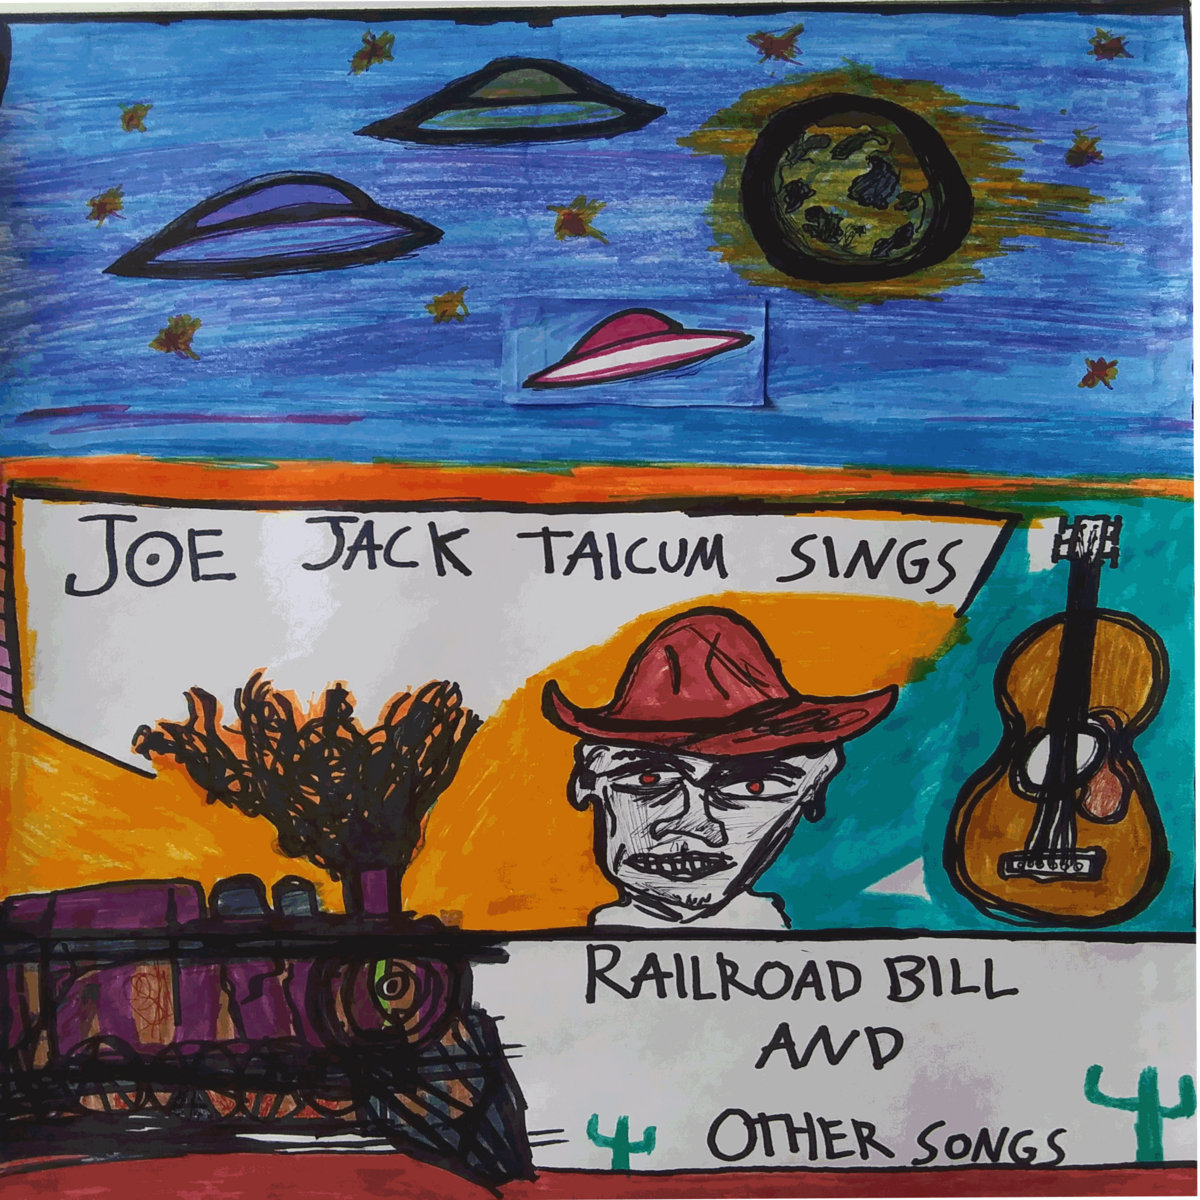 JOE JACK TALCUM SINGS
RAILROAD BILL
AND
OTHER SONGS